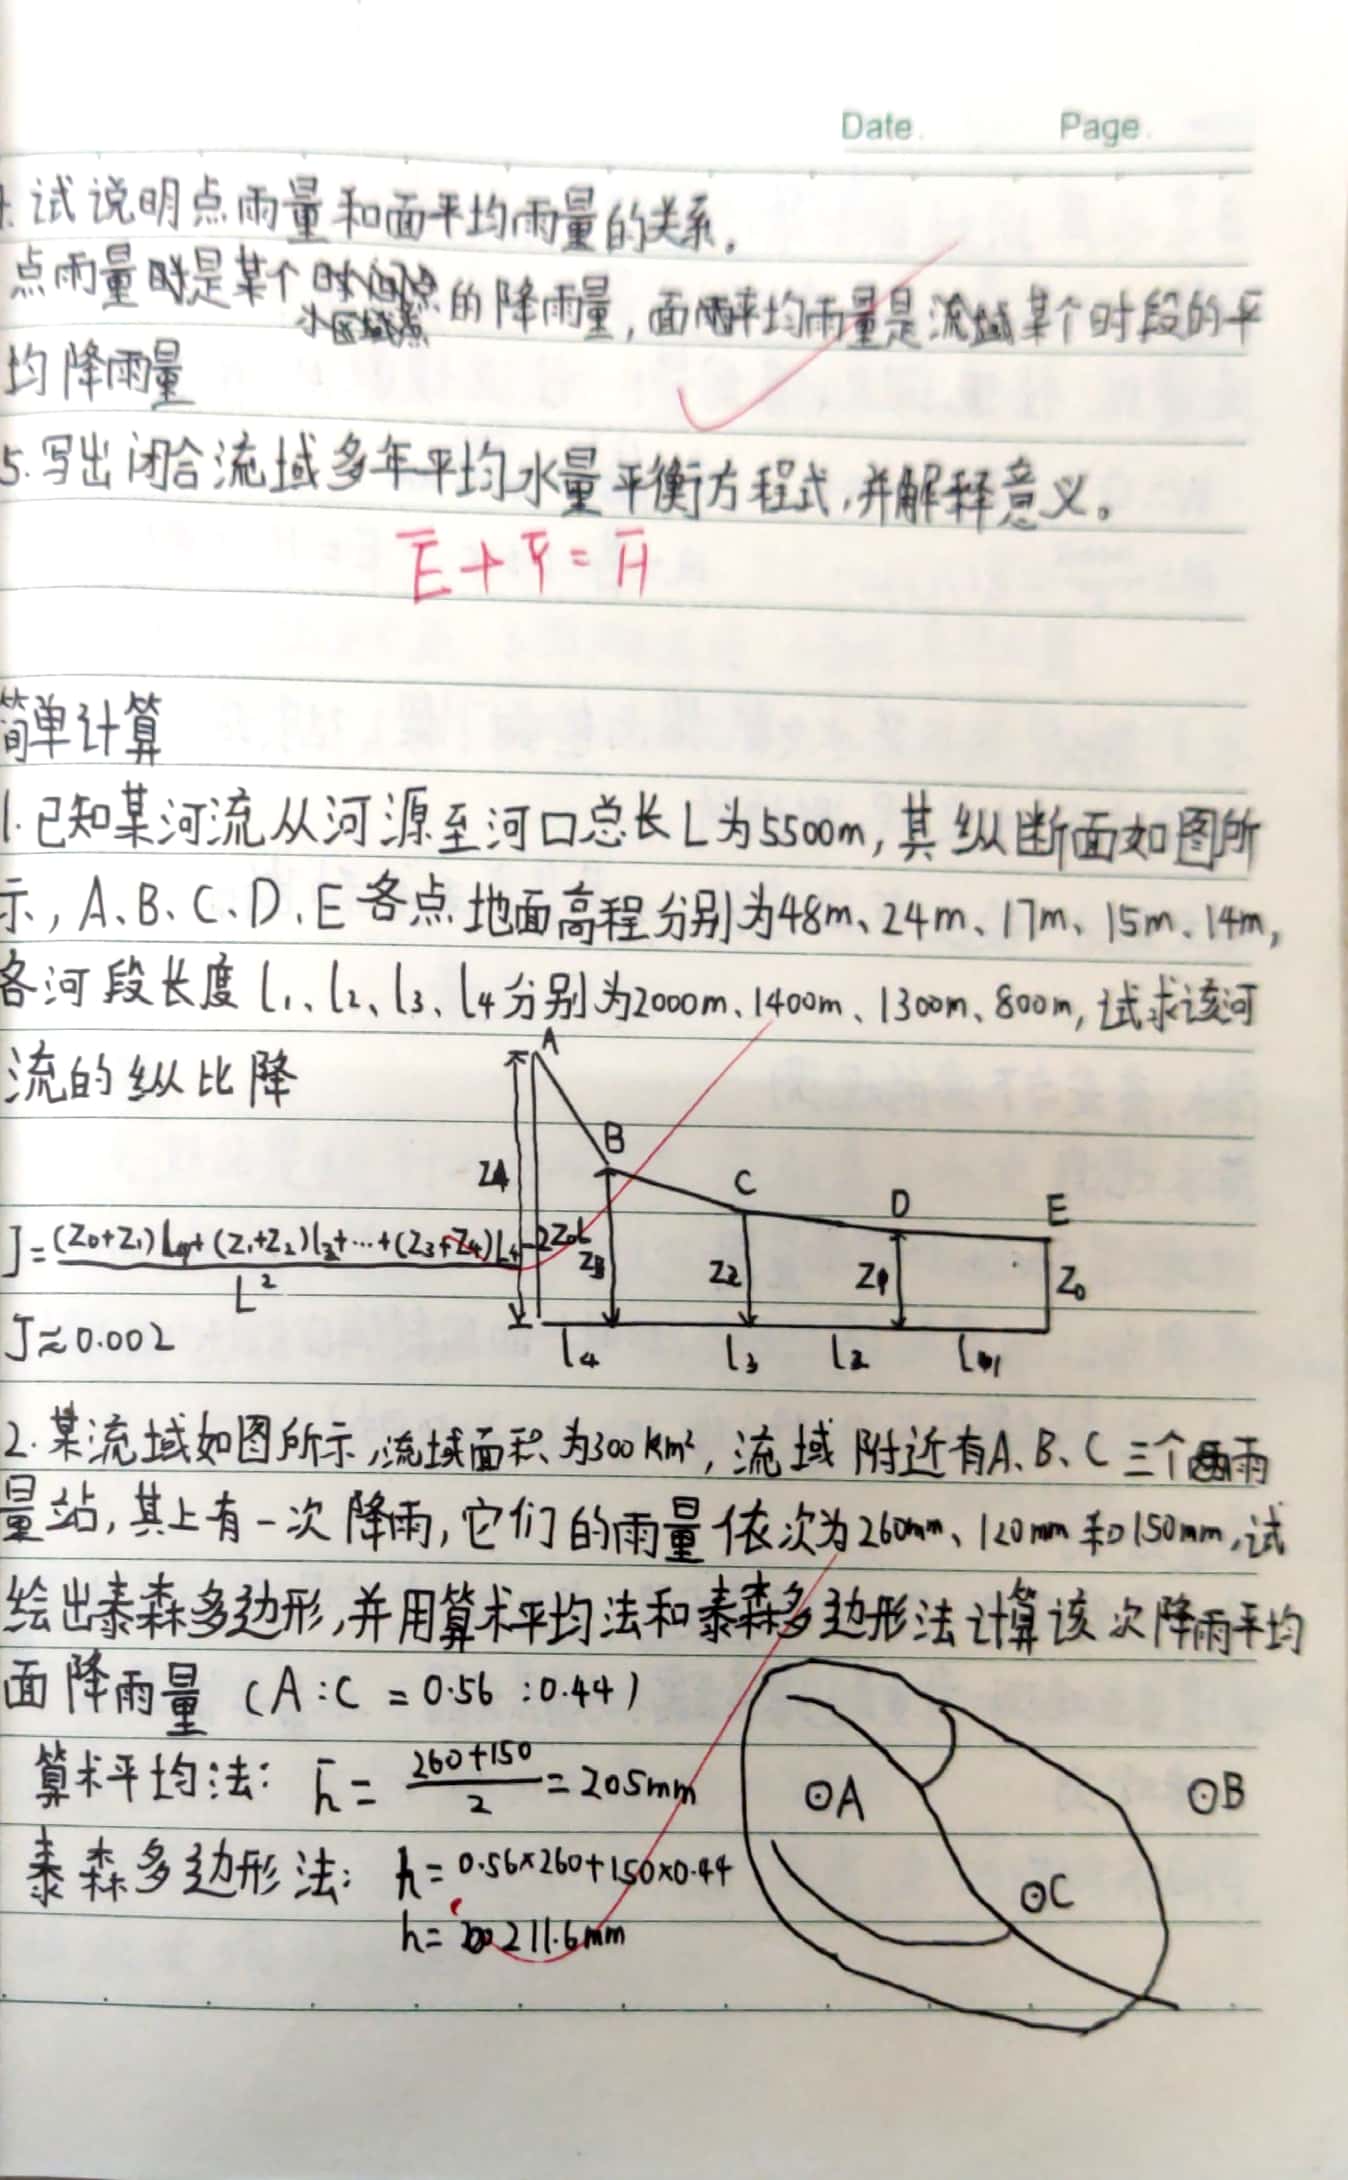 Date. Page.
试说明点雨量和面平均雨量的关系。
点雨量是某个小区域点的降雨量，面平均雨量是流域某个时段的平
均降雨量
5.写出闭合流域多年平均水量平衡方程式,并解释意义。
E̅+Y̅=H̅
简单计算
1.已知某河流从河源至河口总长L为5500m,其纵断面如图所
示,A、B、C、D、E各点地面高程分别为48m、24m、17m、15m、14m,
各河段长度l₁、l₂、l₃、l₄分别为2000m、1400m、1300m、800m,试求该河
流的纵比降
A
B
C
D
E
Z4
Z3
Z2
Z1
Z₀
l₄ l₃ l₂ l₁
J=((Z₀+Z₁)l₁+(Z₁+Z₂)l₂+…+(Z₃+Z₄)L₄-2Z₀L)/L²
J≈0.002
2.某流域如图所示,流域面积为300km²,流域附近有A、B、C三个雨
量站,其上有一次降雨,它们的雨量依次为260mm、120mm和150mm,试
绘出泰森多边形,并用算术平均法和泰森多边形法计算该次降雨平均
面降雨量(A:C=0.56:0.44)
算术平均法: h̅=(260+150)/2=205mm
泰森多边形法: h=0.56×260+150×0.44
h=211.6mm
⊙A
⊙B
⊙C